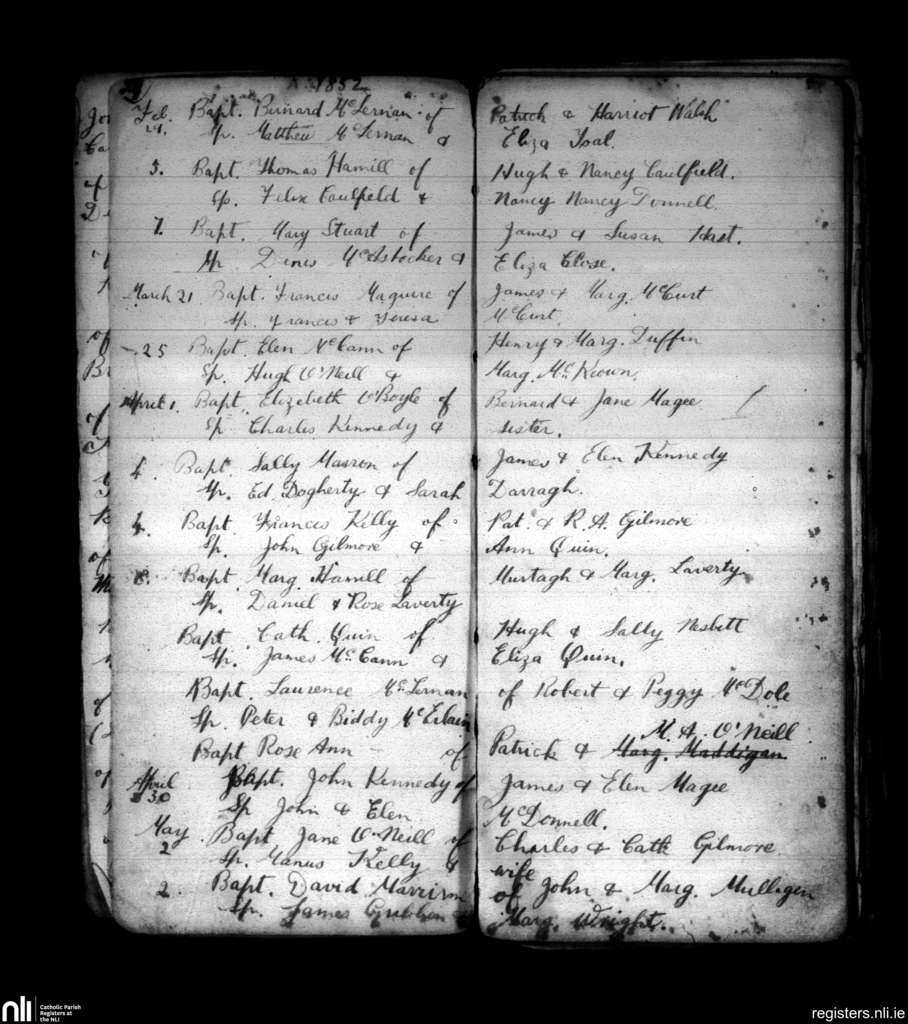 A. 1852
Feb. Bapt. Bernard McLernan of Patrick & Harriot Walsh
21. Sp. Matthew McLernan & Eliza Toal.
3. Bapt. Thomas Hamill of Hugh & Nancy Caulfield.
Sp. Felix Caulfield & Nancy Nancy Donnell
7. Bapt. Mary Stuart of James & Susan Hast.
Sp Denis & Eliza Close.
March 21 Bapt. Francis Maguire of James & Marg. McCurt
Sp. Francis & Teresa McCurt.
25 Bapt. Elen McCann of Henry & Marg. Duffin
Sp. Hugh O'Neill & Marg. McKeown.
April 1. Bapt. Elizabeth O'Boyle of Bernard & Jane Magee
Sp. Charles Kennedy & sister.
4. Bapt. Sally of James & Elen Kennedy
Sp. Ed. Dogherty & Sarah Darragh.
4. Bapt Francis Kelly of Pat. & R. A. Gilmore
Sp. John Gilmore & Ann Quin.
8. Bapt Marg. Hamill of Murtagh & Marg. Laverty
Sp. Daniel & Rose Laverty
Bapt Cath. Quin of Hugh & Sally Nesbitt
Sp. James McCann & Eliza Quin.
Bapt. Laurence McLernan of Robert & Peggy McDole
Sp. Peter & Biddy McErlain
M. A. O'Neill
Bapt Rose Ann - of Patrick & Marg. Maddigan
April 30 Bapt. John Kennedy of James & Elen Magee
Sp John & Elen McDonnell.
May 2 Bapt Jane O'Neill of Charles & Cath Gilmore
Sp. Manus Kelly & wife
2. Bapt. David of John & Marg. Mulligen
Sp. James Gribbon & Marg. Wright.
nli
Catholic Parish
Registers at
the NLI
registers.nli.ie